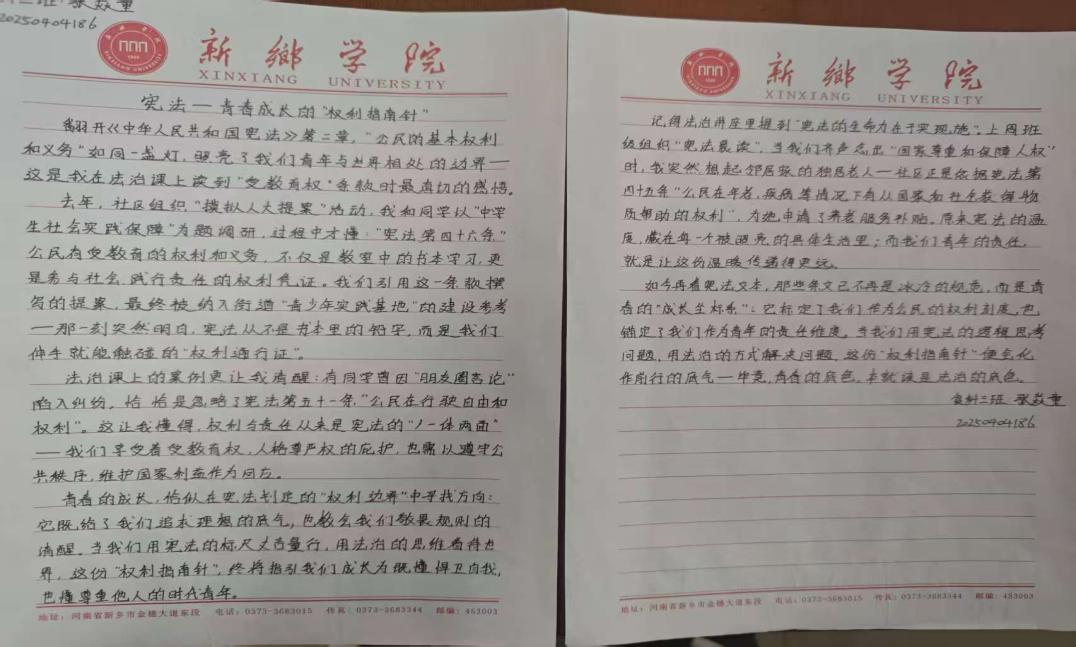 三班 张燚童
20250404186
新鄉学院
XINXIANG UNIVERSITY
宪法——青春成长的"权利指南针"
翻开《中华人民共和国宪法》第二章，"公民的基本权利
和义务"如同一盏灯，照亮了我们青年与世界相处的边界——
这是我在法治课上读到"受教育权"条款时最真切的感悟。
去年，社区组织"模拟人大提案"活动，我和同学以"中学
生社会实践保障"为题调研，过程中才懂："宪法第四十六条"
公民有受教育的权利和义务，不仅是教室中的书本学习，更
是参与社会、践行责任的权利凭证。我们引用这一条款撰
写的提案，最终被纳入街道"青少年实践基地"的建设参考
——那一刻突然明白，宪法从不是书本里的铅字，而是我们
伸手就能触碰的"权利通行证"。
法治课上的案例更让我清醒：有同学曾因"朋友圈言论"
陷入纠纷，恰恰是忽略了宪法第五十一条"公民在行驶自由和
权利"。这让我懂得，权利与责任从来是宪法的"一体两面"
——我们享受着受教育权、人格尊严权的庇护，也需以遵守公
共秩序，维护国家利益作为回应。
青春的成长，恰似在宪法划定的"权利边界"中寻找方向：
它既给了我们追求理想的底气，也教会我们敬畏规则的
清醒。当我们用宪法的标尺丈量言行，用法治的思维看待世
界，这份"权利指南针"，终将指引我们成长为既懂得卫自我，
也懂尊重他人的时代青年。
地址：河南省新乡市金穗大道东段 电话：0373-3683015 传真：0373-3683344 邮编：453003
新鄉学院
XINXIANG UNIVERSITY
记得法治讲座里提到"宪法的生命力在于实施"，上周班
级组织"宪法晨读"，当我们齐声念出"国家尊重和保障人权"
时，我突然想起邻居张的独居老人——社区正是依据宪法第
四十五条"公民在年老、疾病等情况下有从国家和社会获得物
质帮助的权利"，为她申请了养老服务补贴。原来宪法的温
度，藏在每一个被照亮的具体生活里；而我们青年的责任，
就是让这份温暖传递得更远。
如今再看宪法文本，那些条文已不再是冰冷的规范，而是青
春的"成长坐标系"：它标定了我们作为公民的权利刻度，也
锚定了我们作为青年的责任维度。当我们用宪法的逻辑思考
问题，用法治的方式解决问题，这份"权利指南针"便会化
作前行的底气——毕竟，青春的底色，本就该是法治的底色。
食科三班 张燚童
20250404186
地址：河南省新乡市金穗大道东段 电话：0373-3683015 传真：0373-3683344 邮编：453003